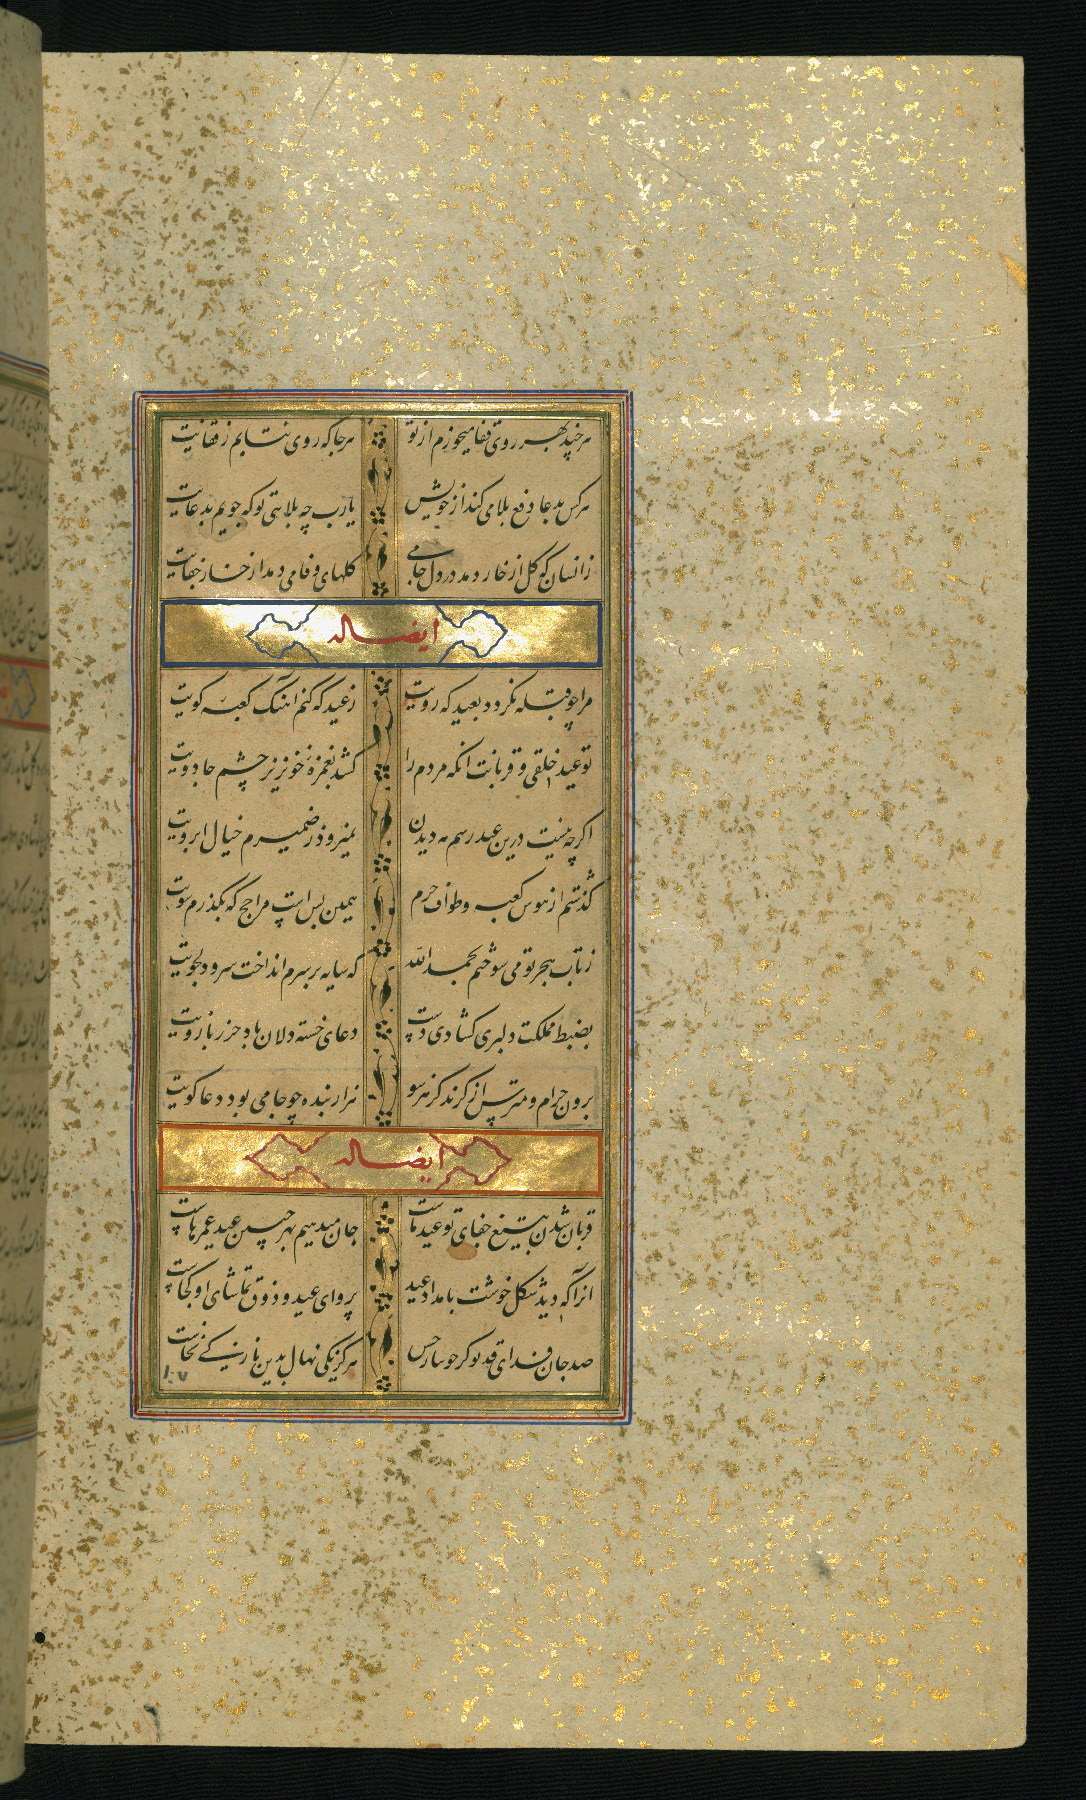 هرچند بهر روی قفا میخورم از تو
هرجا که روی نتابم ز قفایت
هرکس بدعا دفع بلا می کند از خویش
یارب چه بلایی تو که جویم بدعایت
زانسان که گل از خار دمد در دل جامی
گلهای وفا می دمد از خار جفایت
ایضا له
مرا چو قبله نکردد بعید که رویت
ز عید که کنم اهنک کعبه کویت
تو عید خلقی و قربانت انکه مردم را
کشد بغمزه خونریز چشم جادویت
اکرچه نیست درین عید رسم مه دیدن
نمیرود ز ضمیرم خیال ابرویت
گذشتم از هوس کعبه و طواف حرم
همین بس است مرا حج که بکذرم سویت
ز تاب هجر تو می سوختم بحمدالله
که سایه بر سرم انداخت سرو دلجویت
بضبط مملکت دلبری کشادی دست
دعای خسته دلان باد حرز بازویت
برون خرام و مترس از گزند کز هر سو
هزار بنده چو جامی بود دعا کویت
ایضا له
قربان شدن بتیغ جفای تو عید ماست
جان میدهیم بهر چنین عید عمرهاست
انرا که دید شکل خوشت بامداد عید
پروای عید و ذوق تماشای او کجاست
صد جان فدای قد تو کز جویبار حسن
هرگز یکی نهال بدین نازکی نخاست
١٠٧